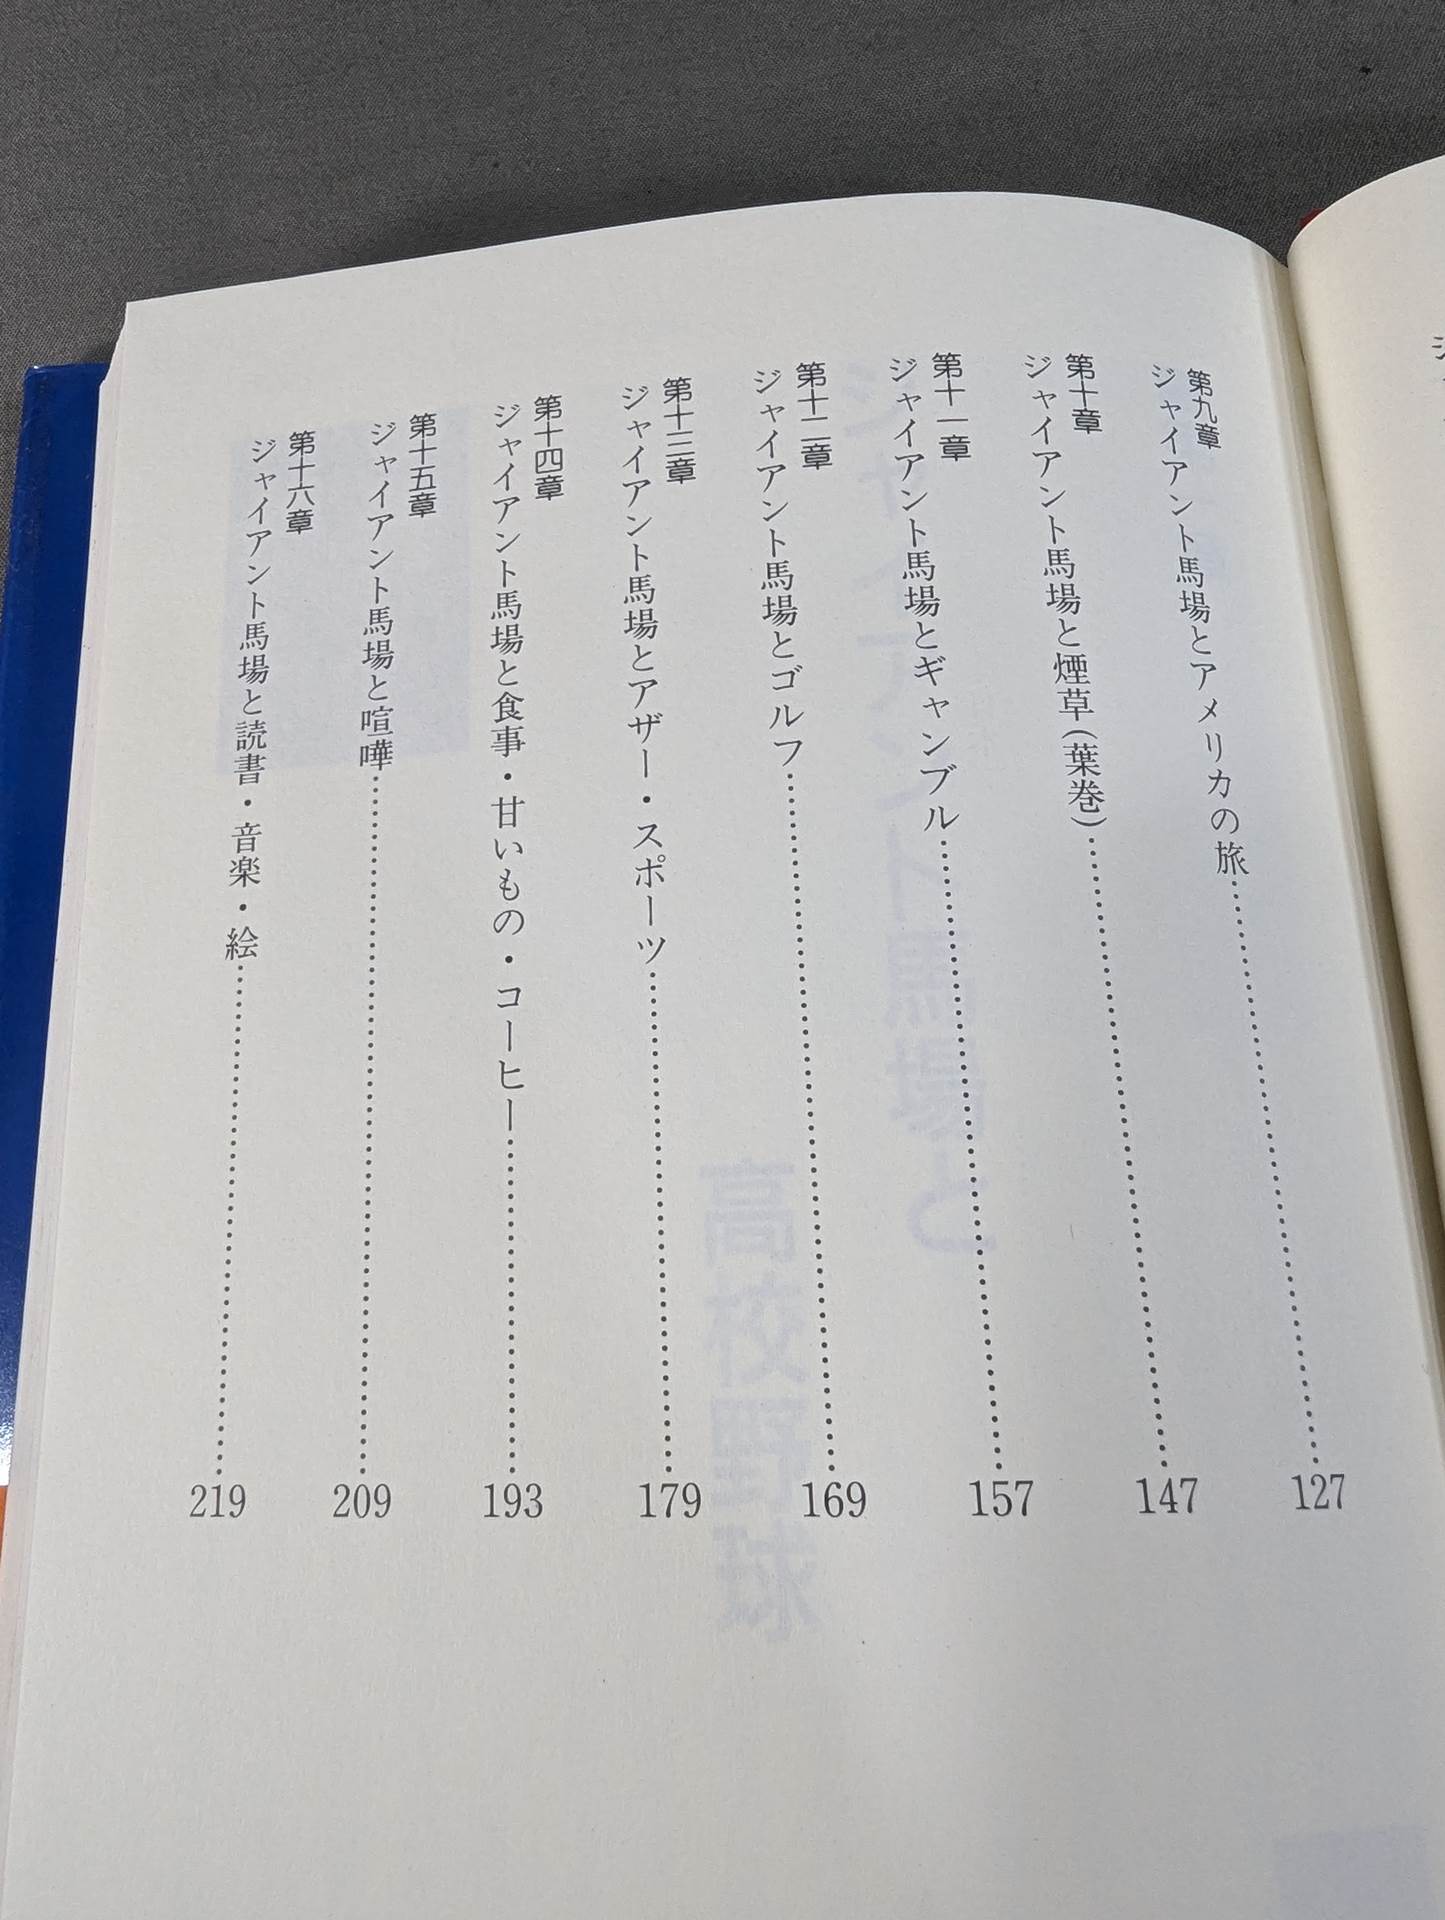 第九章
ジャイアント馬場とアメリカの旅……127
第十章
ジャイアント馬場と煙草（葉巻）……147
第十一章
ジャイアント馬場とギャンブル……157
第十二章
ジャイアント馬場とゴルフ……169
第十三章
ジャイアント馬場とアザー・スポーツ……179
第十四章
ジャイアント馬場と食事・甘いもの・コーヒー……193
第十五章
ジャイアント馬場と喧嘩……209
第十六章
ジャイアント馬場と読書・音楽・絵……219
ジャイアント馬場と
高校野球